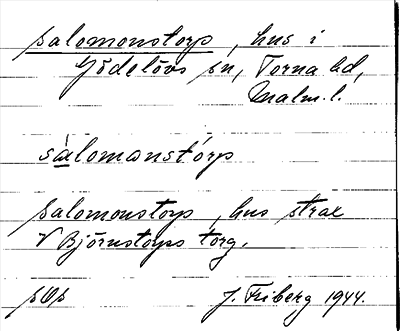 Salomonstorp, hus i
Gödelövs sn, Torna hd,
Malm. l.
sàlomonstórp
Salomonstorp, hus strax
V Björnstorps torg.
sOp
J. Friberg 1944.